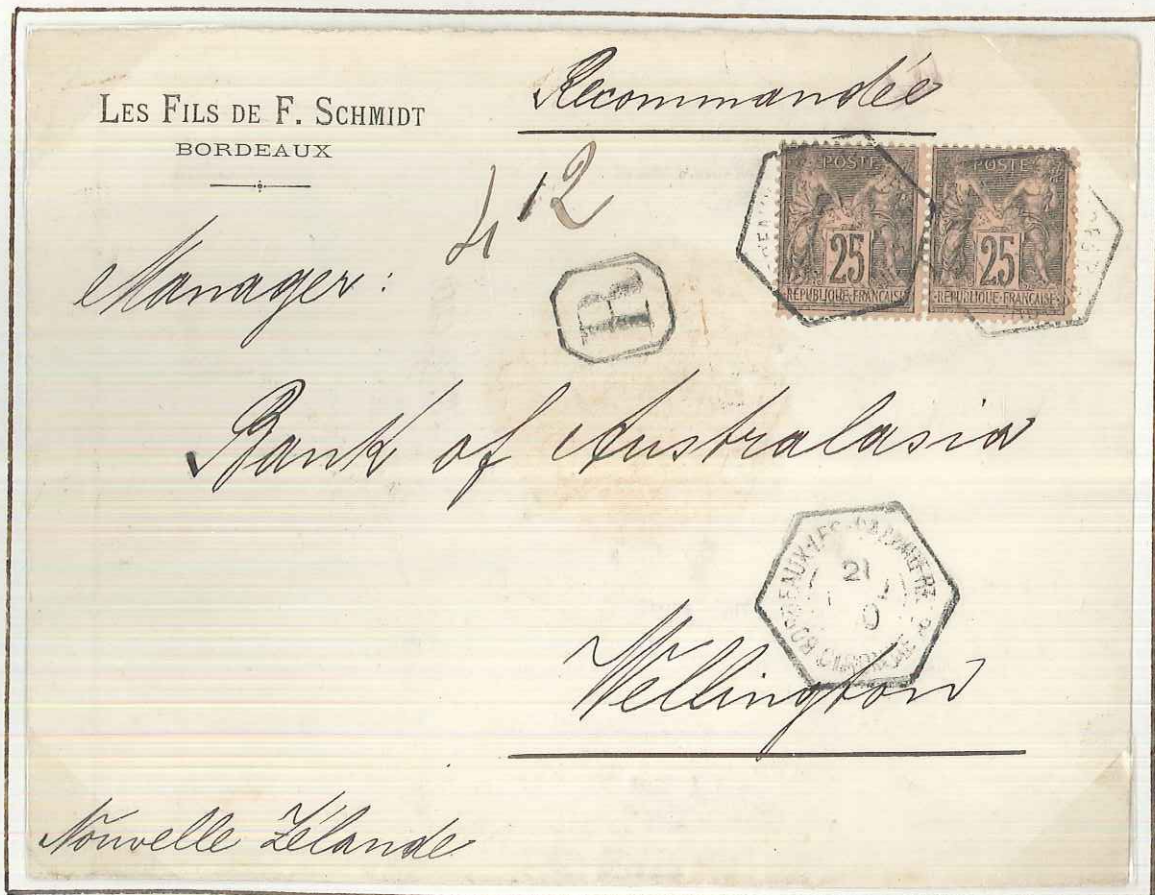 LES FILS DE F. SCHMIDT
BORDEAUX
Recommandée
412
R
POSTE
25
REPUBLIQUE FRANÇAISE
POSTE
25
REPUBLIQUE FRANÇAISE
Manager:
Bank of Australasia
BORDEAUX-LES-
GIRONDE
Wellington
Nouvelle Zélande